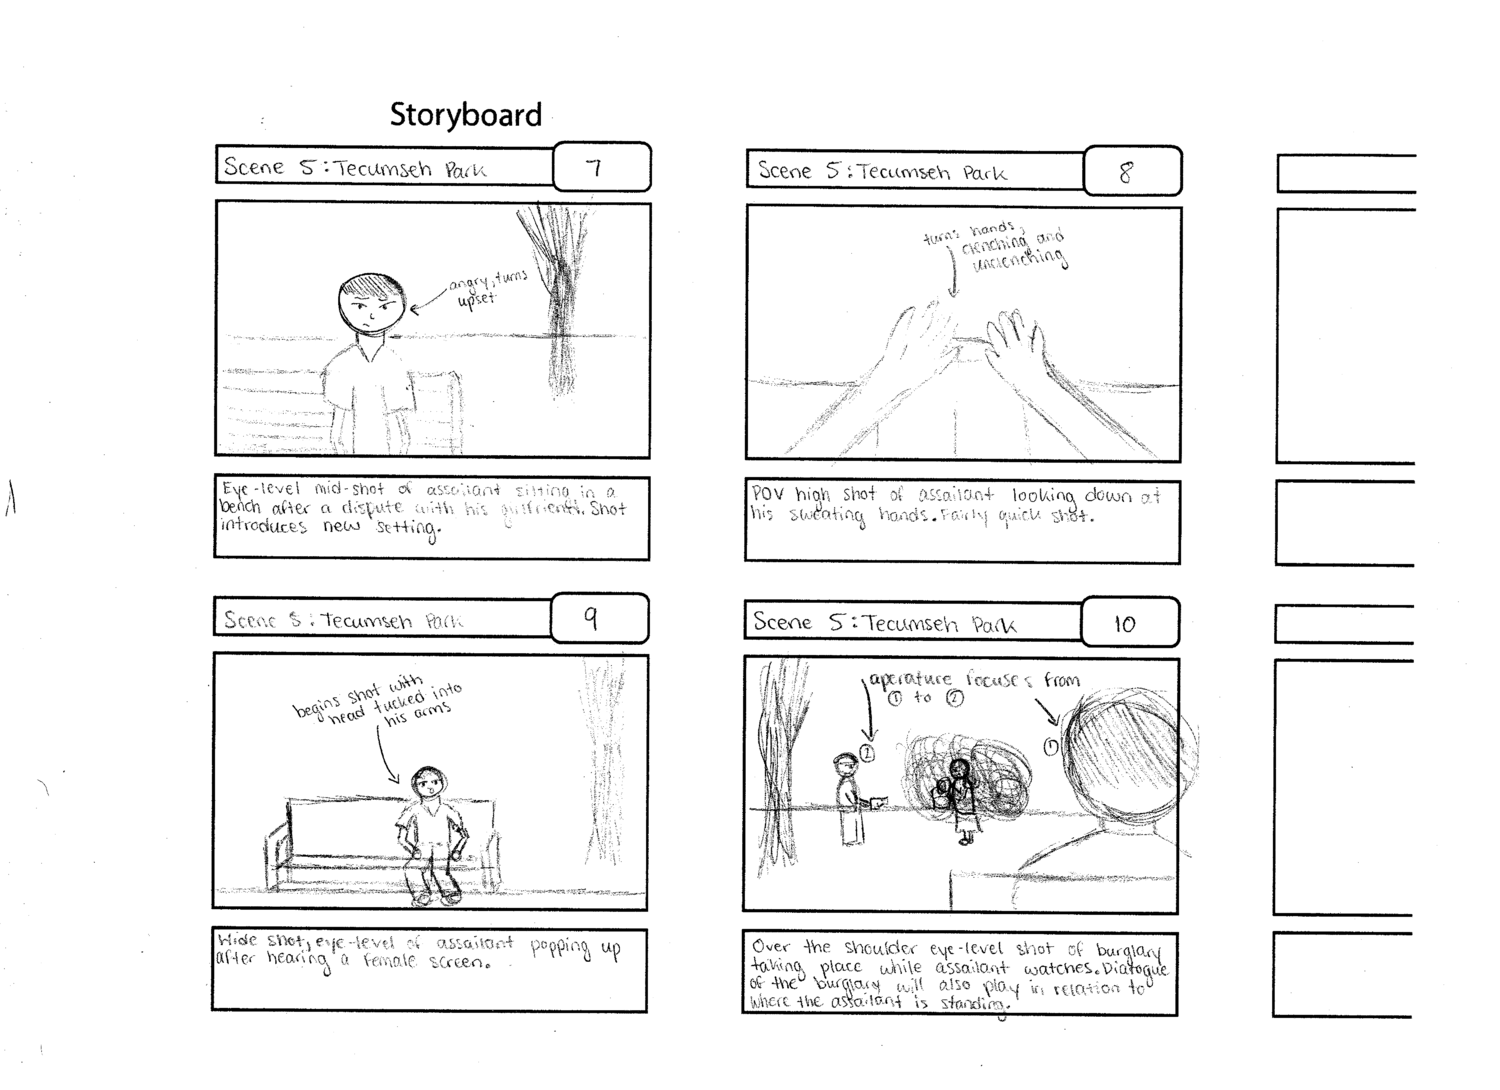 Storyboard
Scene 5: Tecumseh Park
7
angry, turns
upset
Eye-level mid-shot of assailant sitting in a
bench after a dispute with his girlfriend. Shot
introduces new setting.
Scene 5: Tecumseh Park
8
turns hands,
clenching and
unclenching
POV high shot of assailant looking down at
his sweating hands. Fairly quick shot.
Scene 5: Tecumseh Park
9
begins shot with
head tucked into
his arms
Wide shot, eye-level of assailant popping up
after hearing a female screen.
Scene 5: Tecumseh Park
10
aperature focuses from
① to ②
②
①
Over the shoulder eye-level shot of burglary
taking place while assailant watches. Dialogue
of the burglary will also play in relation to
where the assailant is standing.